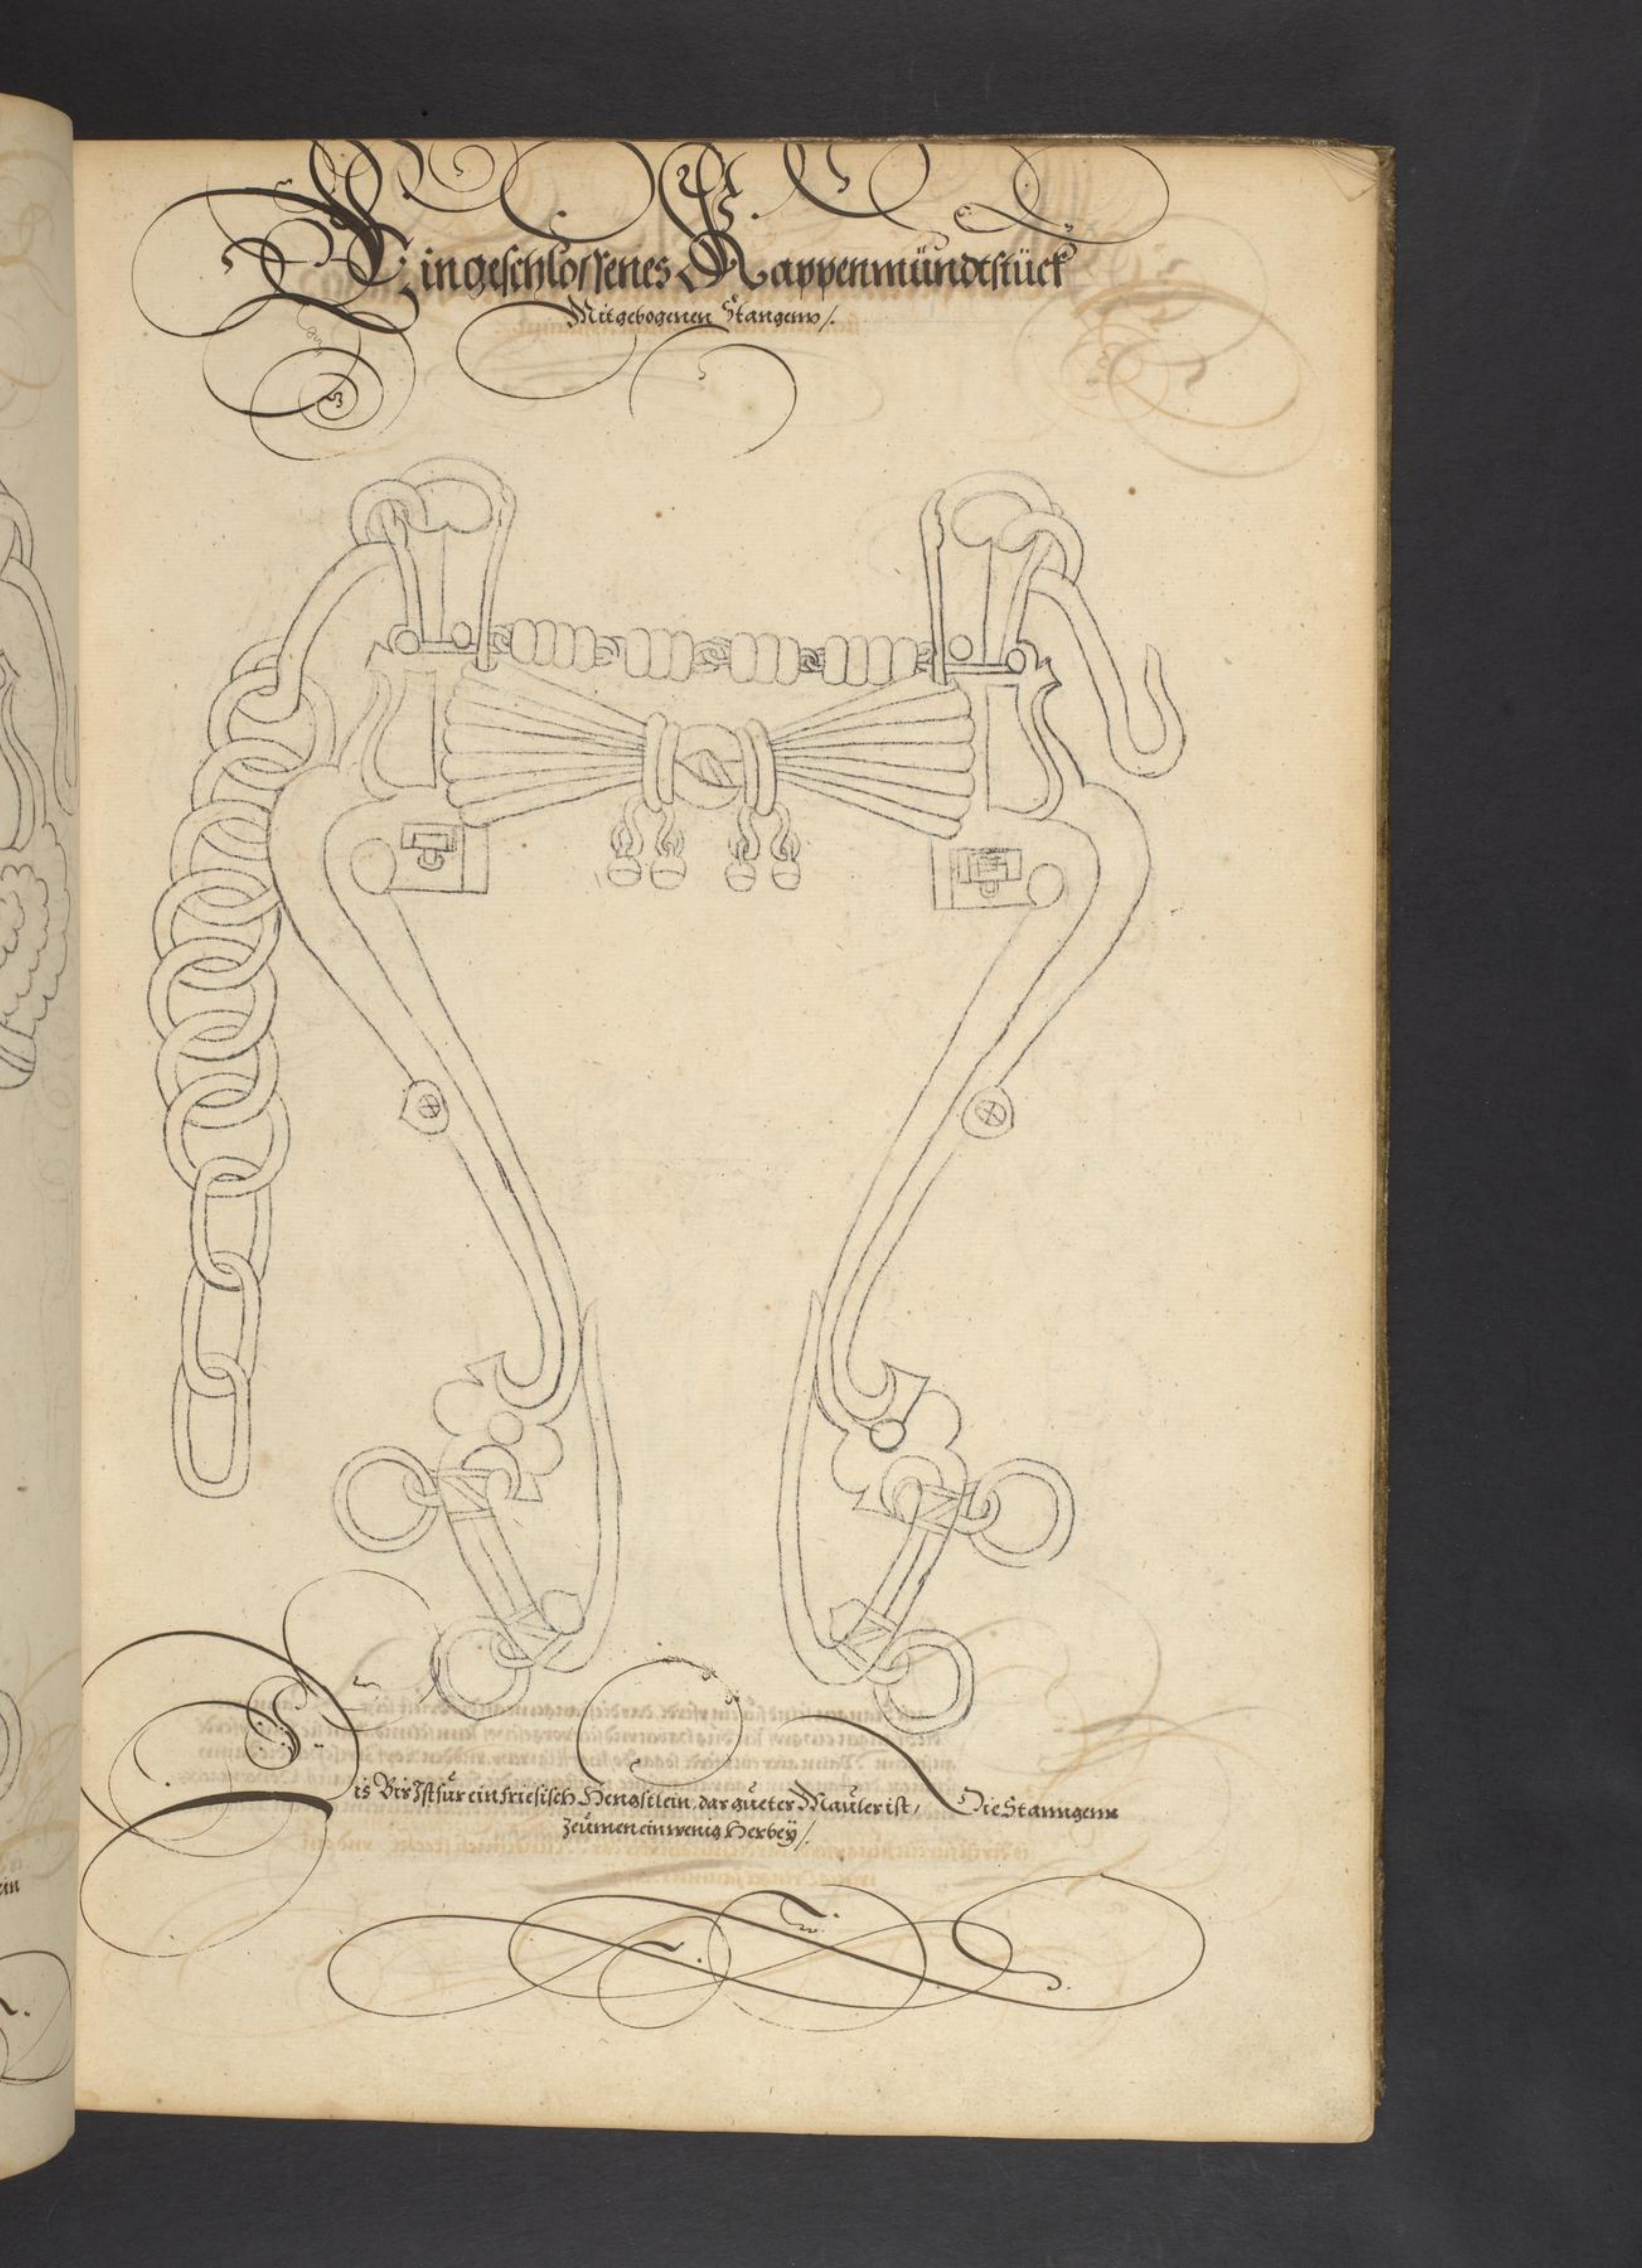 Eingeschlossenes Kappenmündtstück
Mit gebogenen Stangenn /.
Dis Bis Ist für ein friesisch Hengstlein, dar güeter Mäuler ist, Die Stanngenn
Zeümen ein wenig Herbey /.
ein